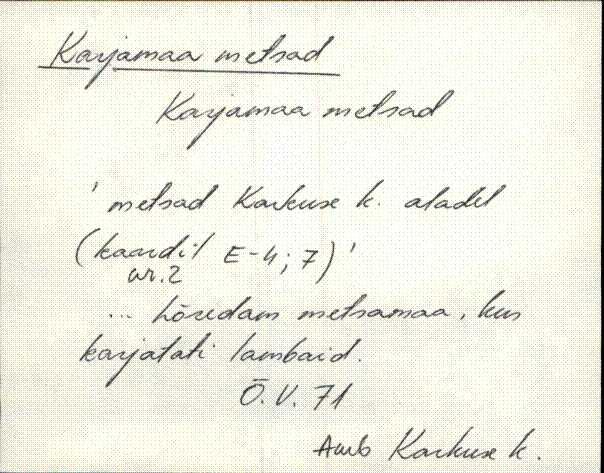 Karjamaa metsad
Karjamaa metsad
' metsad Karkuse k. aladel
(kaardil E-4; 7) '
nr. 2
... hõredam metsamaa, kus
karjatati lambaid.
Õ. V. 71
Amb Karkuse k.